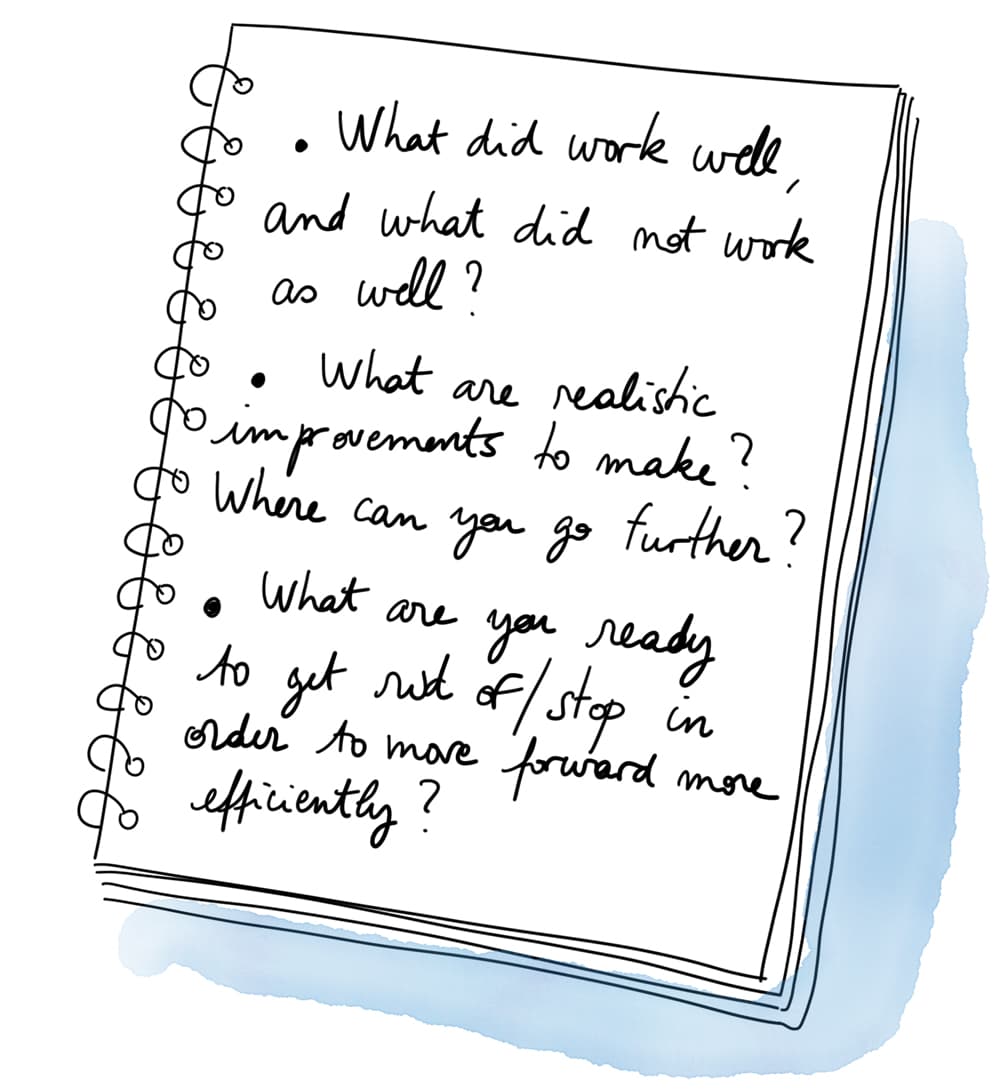 • What did work well,
and what did not work
as well?
• What are realistic
improvements to make?
Where can you go further?
• What are you ready
to get rid of/stop in
order to move forward more
efficiently?